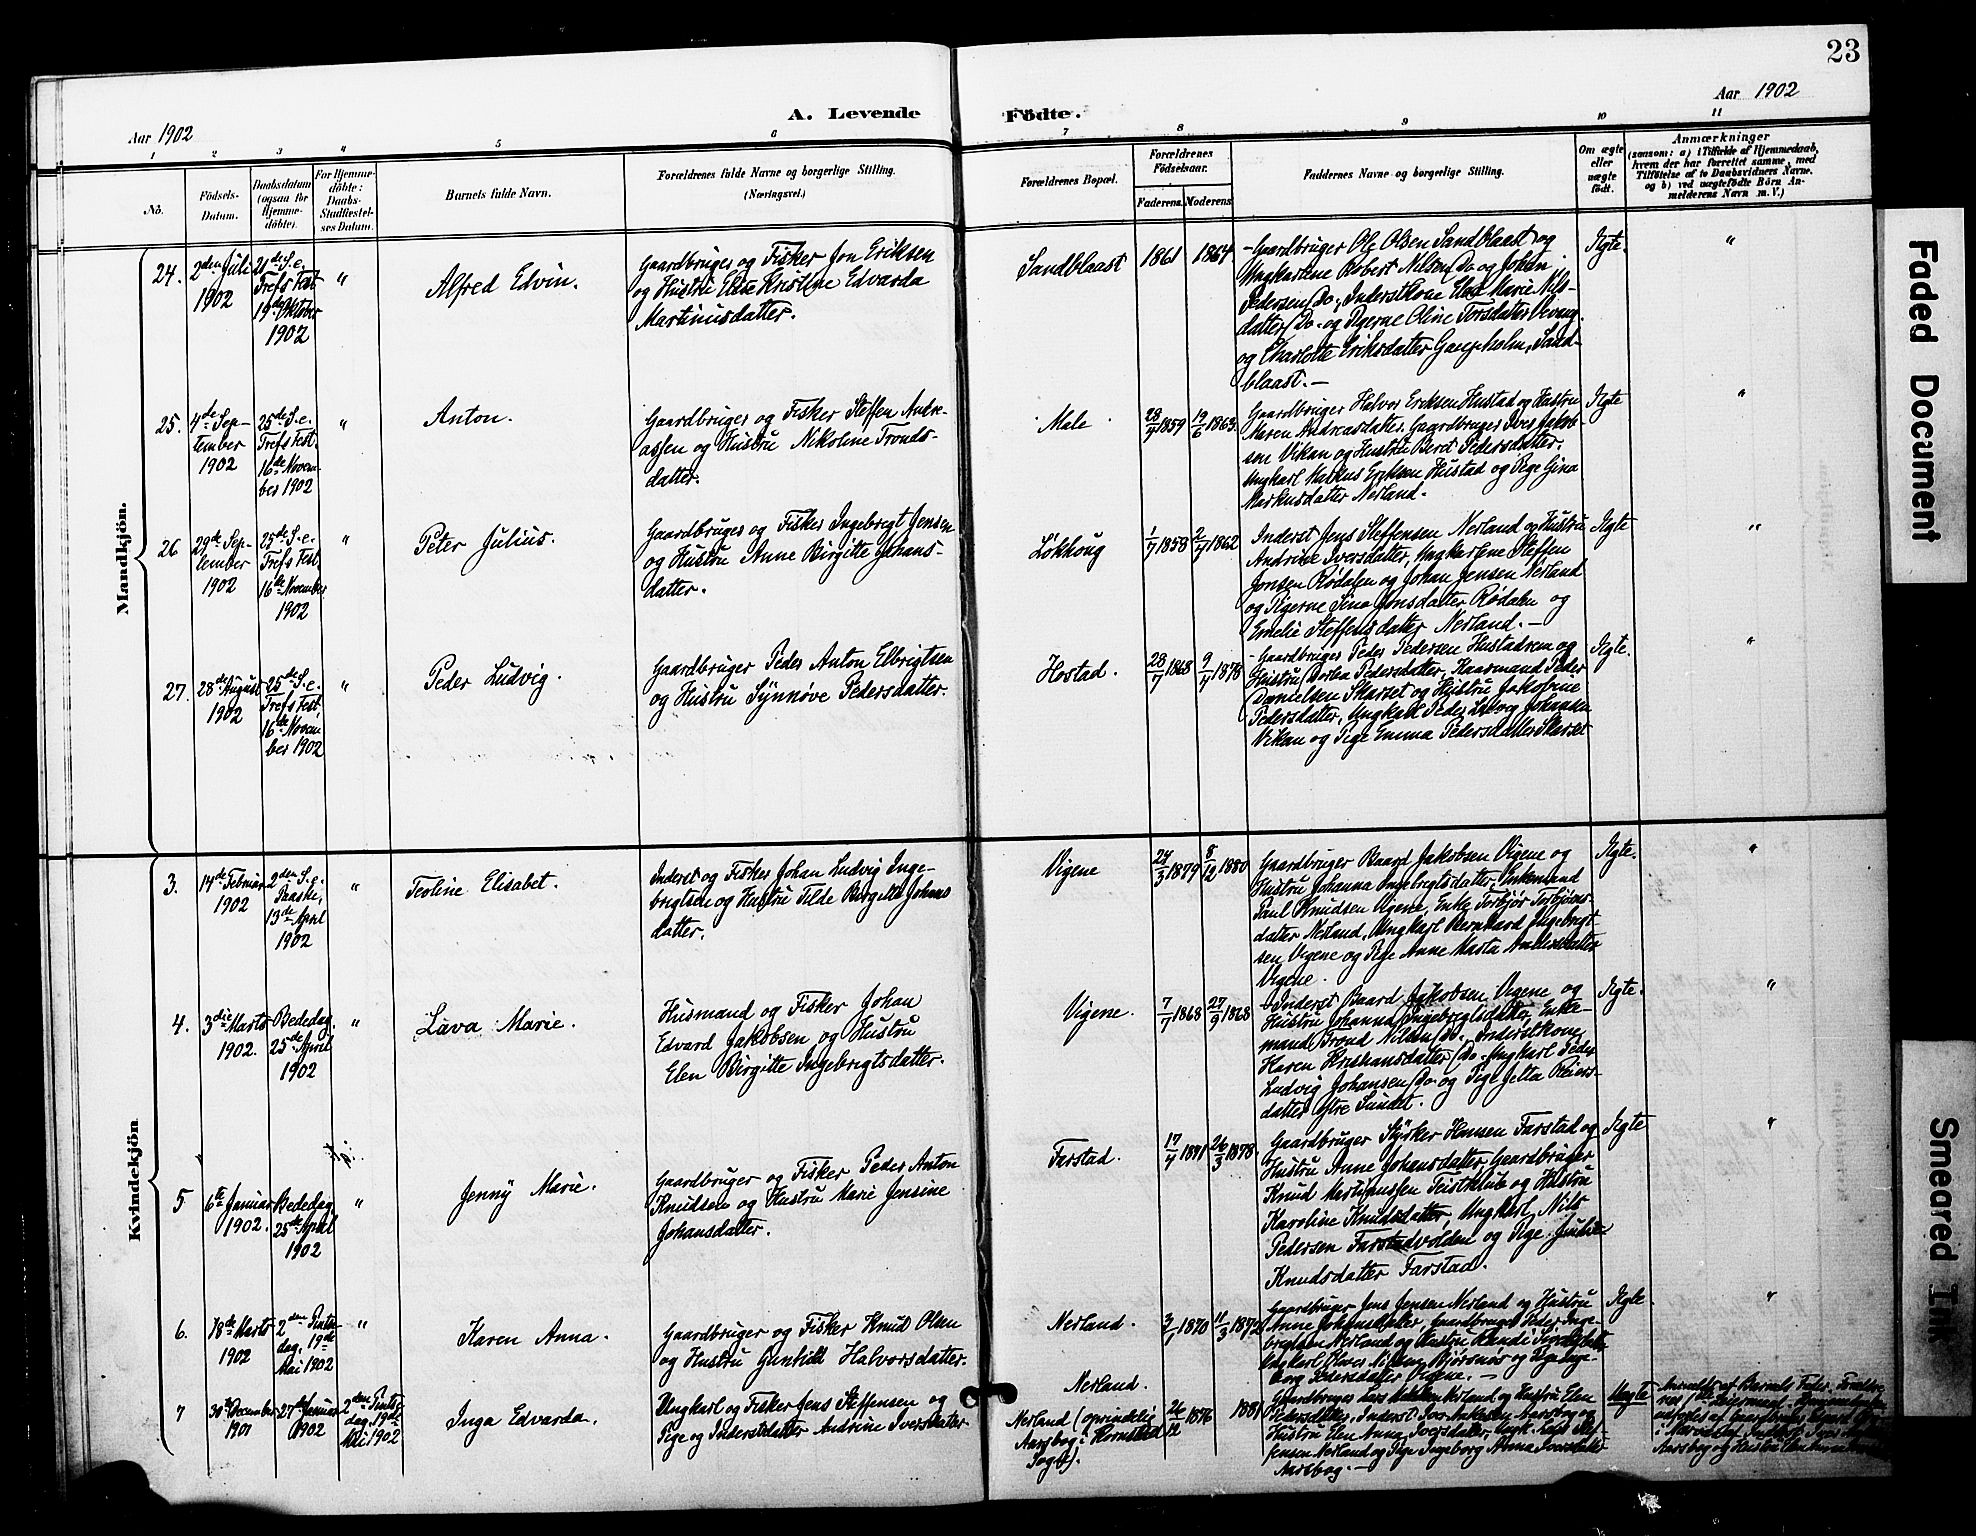 23
Aar 1902
Aar 1902
A. Levende
Födte.
1 2 3 4 5 6 7 8 9 10 11
No.
Födsels-
Datum.
Daabsdatum
(ogsaa for
Hjemme-
döbte).
For Hjemme-
döbte:
Daabs-
Stadfæstel-
ses Datum.
Barnets fulde Navn.
Forældrenes fulde Navne og borgerlige Stilling.
(Næringsvei.)
Forældrenes Bopæl.
Forældrenes
Födselsaar.
Faderens.
Moderens.
Faddernes Navne og borgerlige Stilling.
Om ægte
eller
uægte
födt.
Anmærkninger
(saasom: a) i Tilfælde af Hjemmedaab,
hvem der har forrettet samme, med
Tilföielse af to Daabsvidners Navne.
og b) ved uægtefödte Börn An-
melderens Navn m. V.)
Mandkjön.
24.
2den Juli
1902
21de S. e.
Trefs Fest
19de Oktober
1902
"
Alfred Edvin.
Gaardbruger og Fisker Jon Eriksen
og Hustru Elen Kristine Edvarda
Martinusdatter.
Sandblaast
1861
1864
- Gaardbruger Ole Olsen Sandblaast og
Ungkarlene Robert Nilsen Do og Johan
Pedersen Do, Inderstkone Elen Marie Nils-
datter Do. og Pigerne Oline Torsdatter Vevang
og Charlotte Eriksdatter Gaupholm, Sand-
blaast. -
Ægte.
"
25.
4de Sep-
tember
1902
25de S. e.
Trefs Fest.
16de Novem-
ber 1902
"
Anton.
Gaardbruger og Fisker Steffen Andre-
assen og Hustru Nikoline Tronds-
datter.
Male
28/7 1859
19/6 1863.
Gaardbruger Halvor Eriksen Hustad og Hustru
Maren Andreasdatter, Gaardbruger Iver Jakob-
sen Vikan og Hustru Berit Pedersdatter,
Ungkarl Markus Eriksen Hustad og Pige Gina
Markusdatter Nerland.
Ægte
"
26
29de Sep-
tember
1902
25de S. e.
Trefs Fest,
16de November
1902
"
Peter Julius.
Gaardbruger og Fisker Ingebrigt Jensen
og Hustru Anne Birgitte Johans-
datter.
Lökhoug
1/7 1858
2/7 1862
Inderst Jens Steffensen Nerland og Hustru
Andrine Iversdatter, Ungkarlene Steffen
Jonsen Rödalen og Johan Jensen Nerland
og Pigerne Sina Jonsdatter Rödalen og
Emelie Steffensdatter Nerland. -
Ægte
"
27.
28de August
1902
25de S. e.
Trefs Fest
16de Novem
ber 1902
"
Peder Ludvig.
Gaardbruger Peder Anton Elbrigtsen
og Hustru Synnöve Pedersdatter.
Hostad.
28/7 1868
9/7 1878
- Gaardbruger Peder Pedersen Hustadsem og
Hustru Dortea Pedersdatter, Kaarmand Peder
Danielsen Skarset og Hustru Jakobine
Pedersdatter, Ungkarl Peder Ludvig Johansen
Vikan og Pige Emma Pedersdatter Skarset
Ægte.
"
Kvindekjön.
3.
14de Februar
1902
2den S. e.
Paaske,
13de April
1902
"
Teoline Elisabet.
Inderst og Fisker Johan Ludvig Inge-
brigtsen og Hustru Tilde Birgitte Johans
datter.
Vigene
24/3 1879
8/12 1880
Gaardbruger Baard Jakobsen Vigene og
Hustru Johanna Ingebrigtsdatter, Enkemand
Paul Knudsen Vigene, Enke Torbjör Torbjörns-
datter Nerland, Ungkarl Bernhard Ingebrigt-
sen Vigene og Pige Anne Marta Andersdatter
Vigene.
Ægte.
"
4.
3die Marts
1902.
Bededag.
25de April
1902
"
Lava Marie.
Husmand og Fisker Johan
Edvard Jakobsen og Hustru
Elen Birgitte Ingebrigtsdatter.
Vigene.
7/7 1868
27/9 1868
- Inderst Baard Jakobsen Vigene og
Hustru Johanna Ingebrigtsdatter, Enke-
mand Trond Nilsen Do, Inderstkone
Karen Kristiansdatter Do. Ungkarl Peder
Ludvig Johansen Do. og Pige Jetta Reiers-
datter Ytre Sundet.
Ægte.
"
5
6te Januar
1902.
Bededag
25de April
1902
"
Jenny Marie.
Gaardbruger og Fisker Peder Anton
Knudsen og Hustru Marie Jensine
Johansdatter.
Farstad.
17/7 1871
26/3 1878
Gaardbruger Styrker Hansen Farstad og
Hustru Anne Johansdatter, Gaardbruger
Knud Martinussen Teistklub og Hustru
Karoline Knudsdatter, Ungkarl Nils
Pedersen Farstadvolden og Pige
Knudsdatter Farstad.
Ægte
"
6.
18de Marts
1902
2den Pintse-
dag, 19de
Mai 1902
"
Karen Anna.
Gaardbruger og Fisker Knud Olsen
og Hustru Gunhild Halvorsdatter.
Nerland.
3/1 1870
11/3 1872
Gaardbruger Jens Jensen Nerland og Hustru
Anne Johansdatter, Gaardbruger Peder Inge-
brigtsen Nerland og Hustru Randi
Ungkarl Björsnös og Pige Inge-
borg Pedersdatter Vigene. -
Ægte.
"
7
30te December
1901
27de Januar
1902
2den Pints-
dag, 19de
Mai 1902
Inga Edvarda.
Ungkarl og Fisker Jens Steffensen og
Pige og Inderstdatter Andrine Iversdatter
Nerland.
Nerland (oprindelig
Aarsbog i Kornstad
Sogn).
26/12 1876
1881
Gaardbruger Lars Nerland og Hustru Elen
Pedersdatter, Inderst Iver Aarsbog og
Hustru Elen Anna Iversdatter, Ungk. Lars Stef-
fensen Nerland og Pige Ingeborg Anna Iversdatter
Aarsbog. -
Uægte
Anmeldt af Barnets Fader.